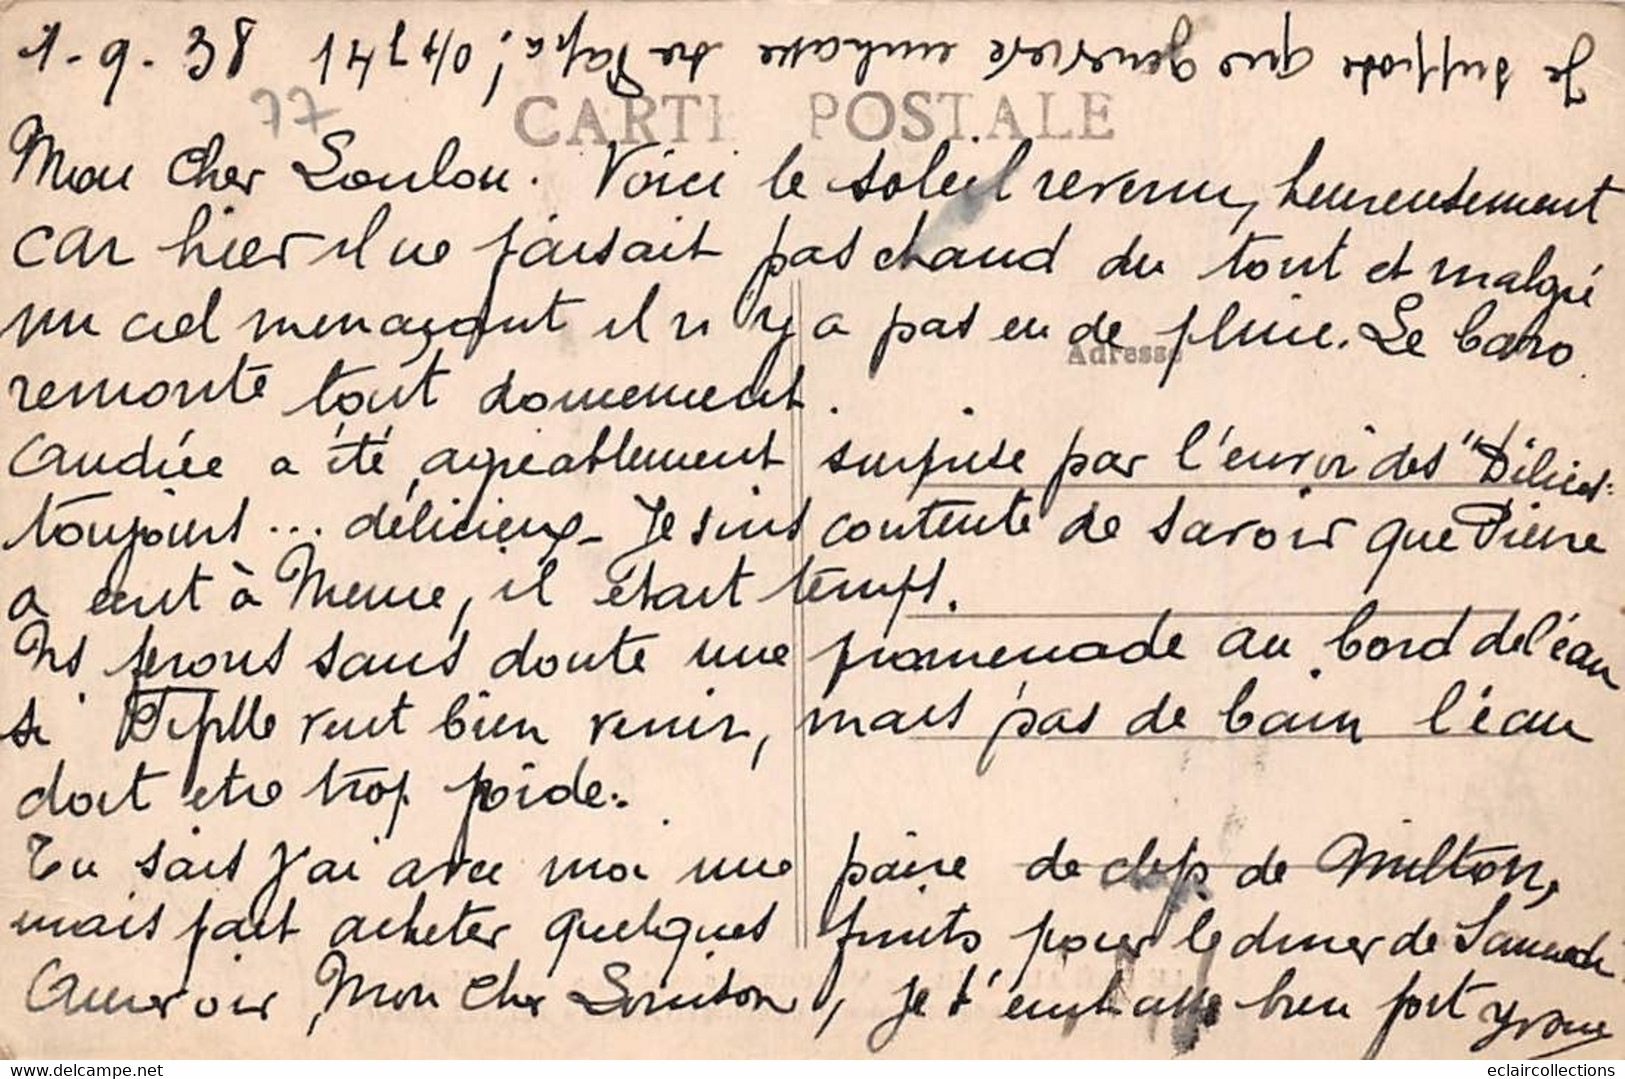 1-9-38 14h40
Je suppose que Geneviève embrasse sre Papa!
77
CARTE POSTALE
Mon Cher Loulou. Voici le soleil revenu, heureusement
car hier il ne faisait pas chaud du tout et malgré
un ciel menaçant il n'y a pas eu de pluie. Le baro
remonte tout doucement.
Adresse
Andrée a été agréablement surprise par l'envoi des "Délices"
toujours ... délicieux - Je suis contente de savoir que Pierre
a écrit à Meme, il était temps.
Ns ferons sans doute une promenade au bord de l'eau
si veut bien venir, mais pas de bain l'eau
doit etre trop froide.
Tu sais j'ai avec moi une paire de clefs de Milton,
mais fait acheter quelques fruits pour le diner de Samedi
Aurevoir, Mon Cher Louison, je t'embrasse bien fort Yvonne
eclaircollections